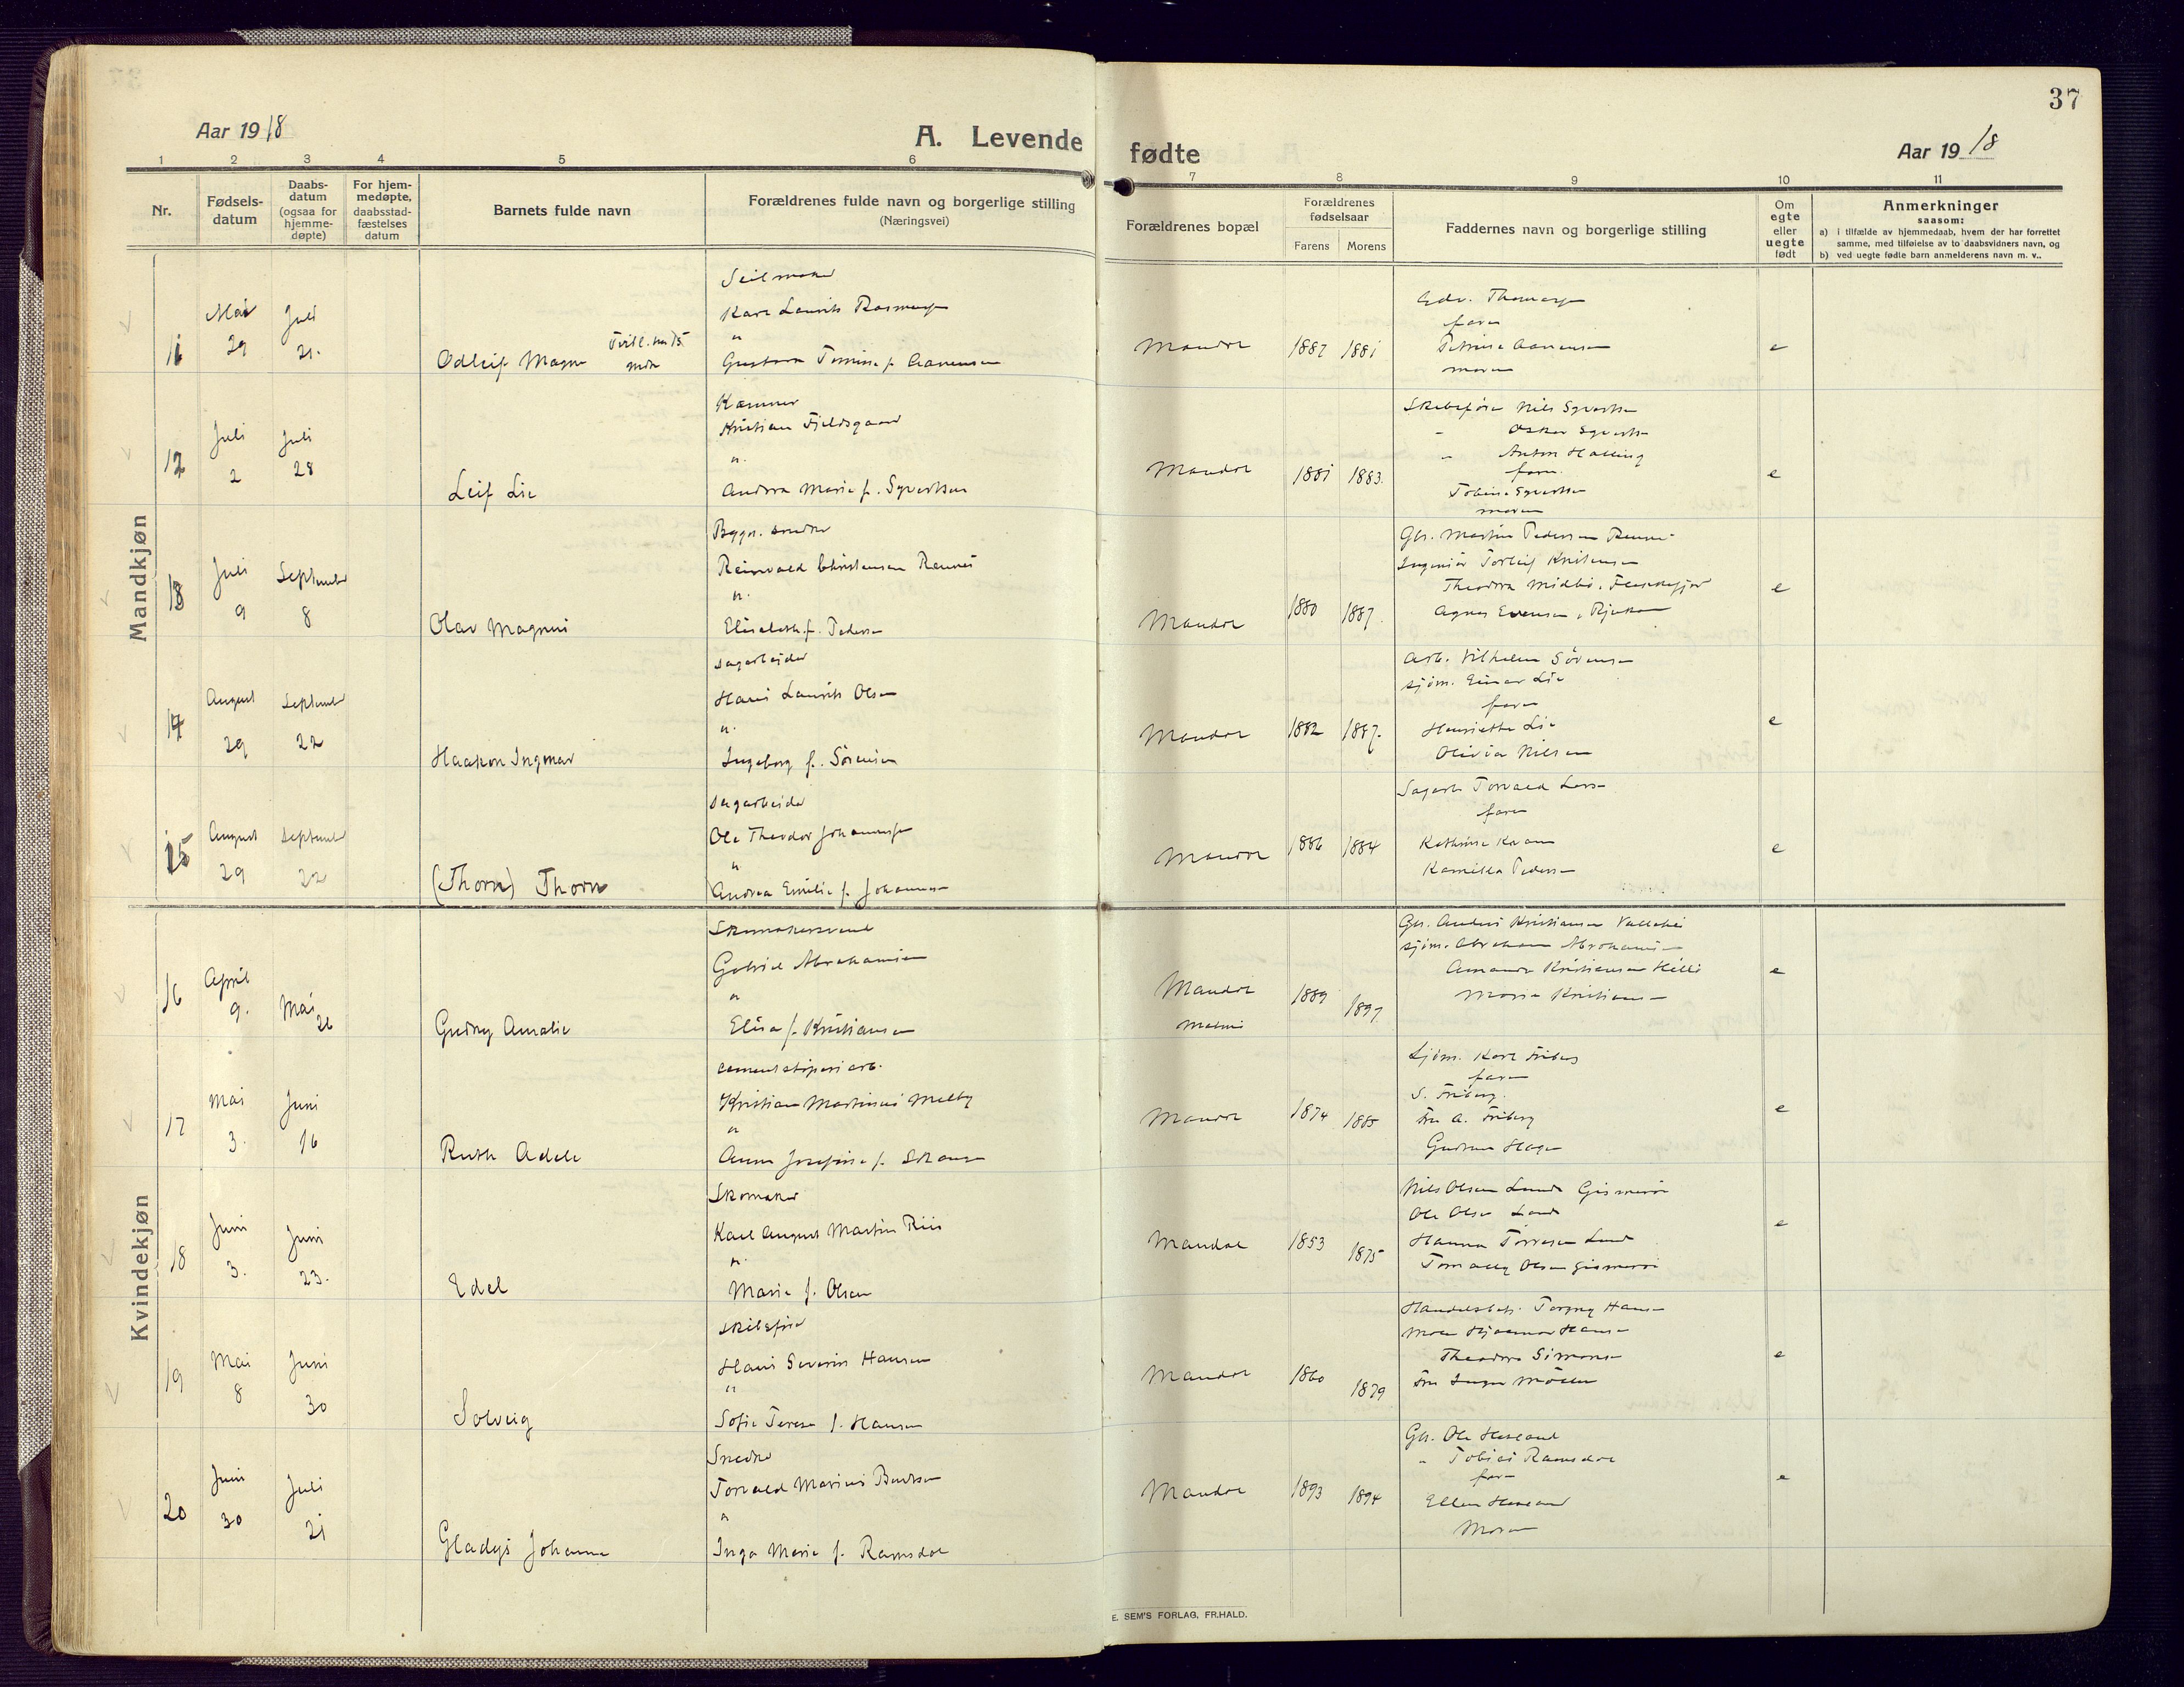 37
Aar 1918
A. Levende fødte
Aar 1918
1 2 3 4 5 6 7 8 9 10 11
Nr.
Fødsels-
datum
Daabs-
datum
(ogsaa for
hjemme-
døpte)
For hjem-
medøpte,
daabsstad-
fæstelses
datum
Barnets fulde navn
Forældrenes fulde navn og borgerlige stilling
(Næringsvei)
Forældrenes bopæl
Forældrenes
fødselsaar
Farens Morens
Faddernes navn og borgerlige stilling
Om
egte
eller
uegte
født
Anmerkninger
saasom:
a) i tilfælde av hjemmedaab, hvem der har forrettet
samme, med tilføielse av to daabsvidners navn, og
b) ved uegte fødte barn anmelderens navn m. v..
Mandkjøn
11
Mai
29
Juli
21.
Odleif Magne
Seilmaker
Karl Laurits Rasmussen
Gustava Tomine f. Aanensen
Mandal
1887 1881
Edv. Thomassen
faren
Petrine Aanensen
moren
e
12
Juli
2
Juli
28
Leif Lie
Kæmner
Kristian Fjeldsgaard
Andrea Marie f. Syvertsen
Mandal
1881 1883.
Skibsfører Nils Syvertsen
" Oskar Syvertsen
" Anton Halling
faren
Tobine Syvertsen
moren
e
13
Juli
9
September
8
Olav Magnus
Bygn. snedker
Reinvald Christensen Rennes
Elisabeth f. Pedersen
Mandal
1880 1887.
Gbr. Martin Pedersen
Ingeniør Torleif Kristensen
Theodora Midbø, Flekkefjord
Agnes Evensen, Rjukan
e
14
August
29
September
22
Haakon Ingmar
Sagarbeider
Hans Laurits Olsen
Ingeborg f. Sørensen
Mandal
1882 1887.
Arb. Vilhelm Sørensen
Sjøm. Einar Lie
faren
Henriette Lie
Olivia Nilsen
e
15
August
29
September
22
(Thorn) Thorn
Sagarbeider
Ole Theodor Johannessen
Andrea Emilie f. Johannesen
Mandal
1886 1884
Sagarb. Torvald Larsen
faren
Kathrine
Kamilla Pedersen
e
Kvindekjøn
16
April
9.
Mai
26
Gudny Amalie
Skomakersvend
Gabriel Abrahamsen
Elisa f. Kristiansen
Mandal
Malmø
1889 1897
Gbr. Anders Kristiansen Vallehei
Sjøm. Abraham Abrahamsen
Amanda Kristiansen Hille
Marie Kristiansen
e
17
Mai
3.
Juni
16
Ruth Adele
Cementstøperiarb.
Kristian Martinius Melby
Anna Josefine f.
Mandal
1874 1885
Sjøm. Karl Friberg
faren
S. Friberg.
Fru A. Friberg
Gudrun Hagen
e
18
Juni
3.
Juni
23.
Edel
Skomaker
Karl August Martin Riis
Marie f. Olsen
Mandal
1853 1875
Nils Olsen Lunde Gismerøi
Ole Olsen Lunde
Hanna Torresen Lunde
Olsen Gismerøi
e
19
Mai
8
Juni
30
Solveig
Skibsfører
Hans Severin Hansen
Sofie Terese f. Hansen
Mandal
1860 1879
Handelsbet. Torgny Hansen
Hjalmar Hansen
Theodora Simonsen
Fru Inger Møller
e
20
Juni
30
Juli
21
Gladys Johanne
Snedker
Torvald Marius Berntsen
Inga Marie f. Ramsdal
Mandal
1893 1894
Gbr. Ole Hesland
" Tobias Ramsdal
far
Ellen Hesland
Moren
e
E. SEM'S FORLAG, FR.HALD.